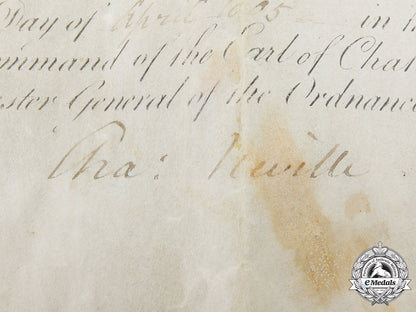 Day of April 1805 in th
ommand of the Earl of Chat
ster General of the Ordnance
Cha: Neville
eMedals